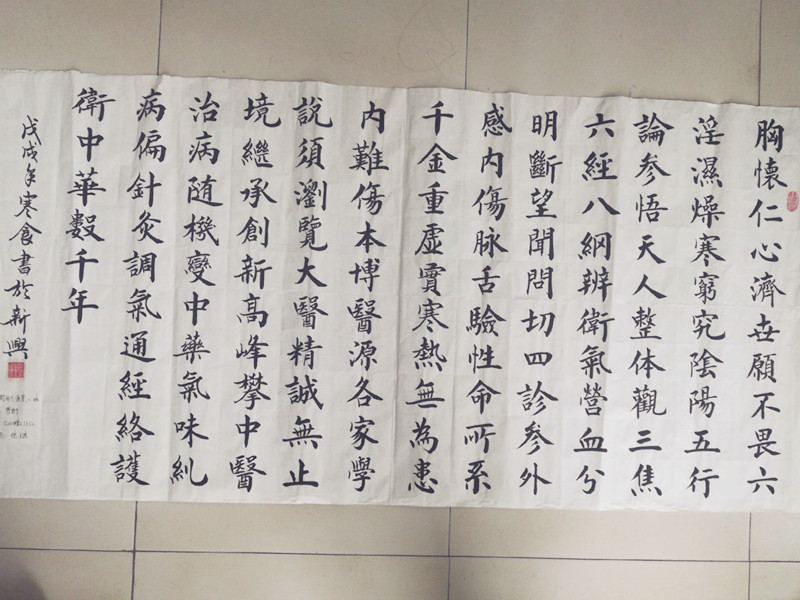 胸懷仁心濟世願不畏六
淫濕燥寒窮究陰陽五行
論參悟天人整体觀三焦
六經八綱辨衛氣營血分
明斷望聞問切四診參外
感内傷脉舌驗性命所系
千金重虛實寒熱無為患
内難傷本博醫源各家學
說須瀏覽大醫精誠無止
境繼承創新高峰攀中醫
治病随機變中藥氣味糺
病偏針灸調氣通經絡護
衛中華數千年
戊戌年寒食書於新興